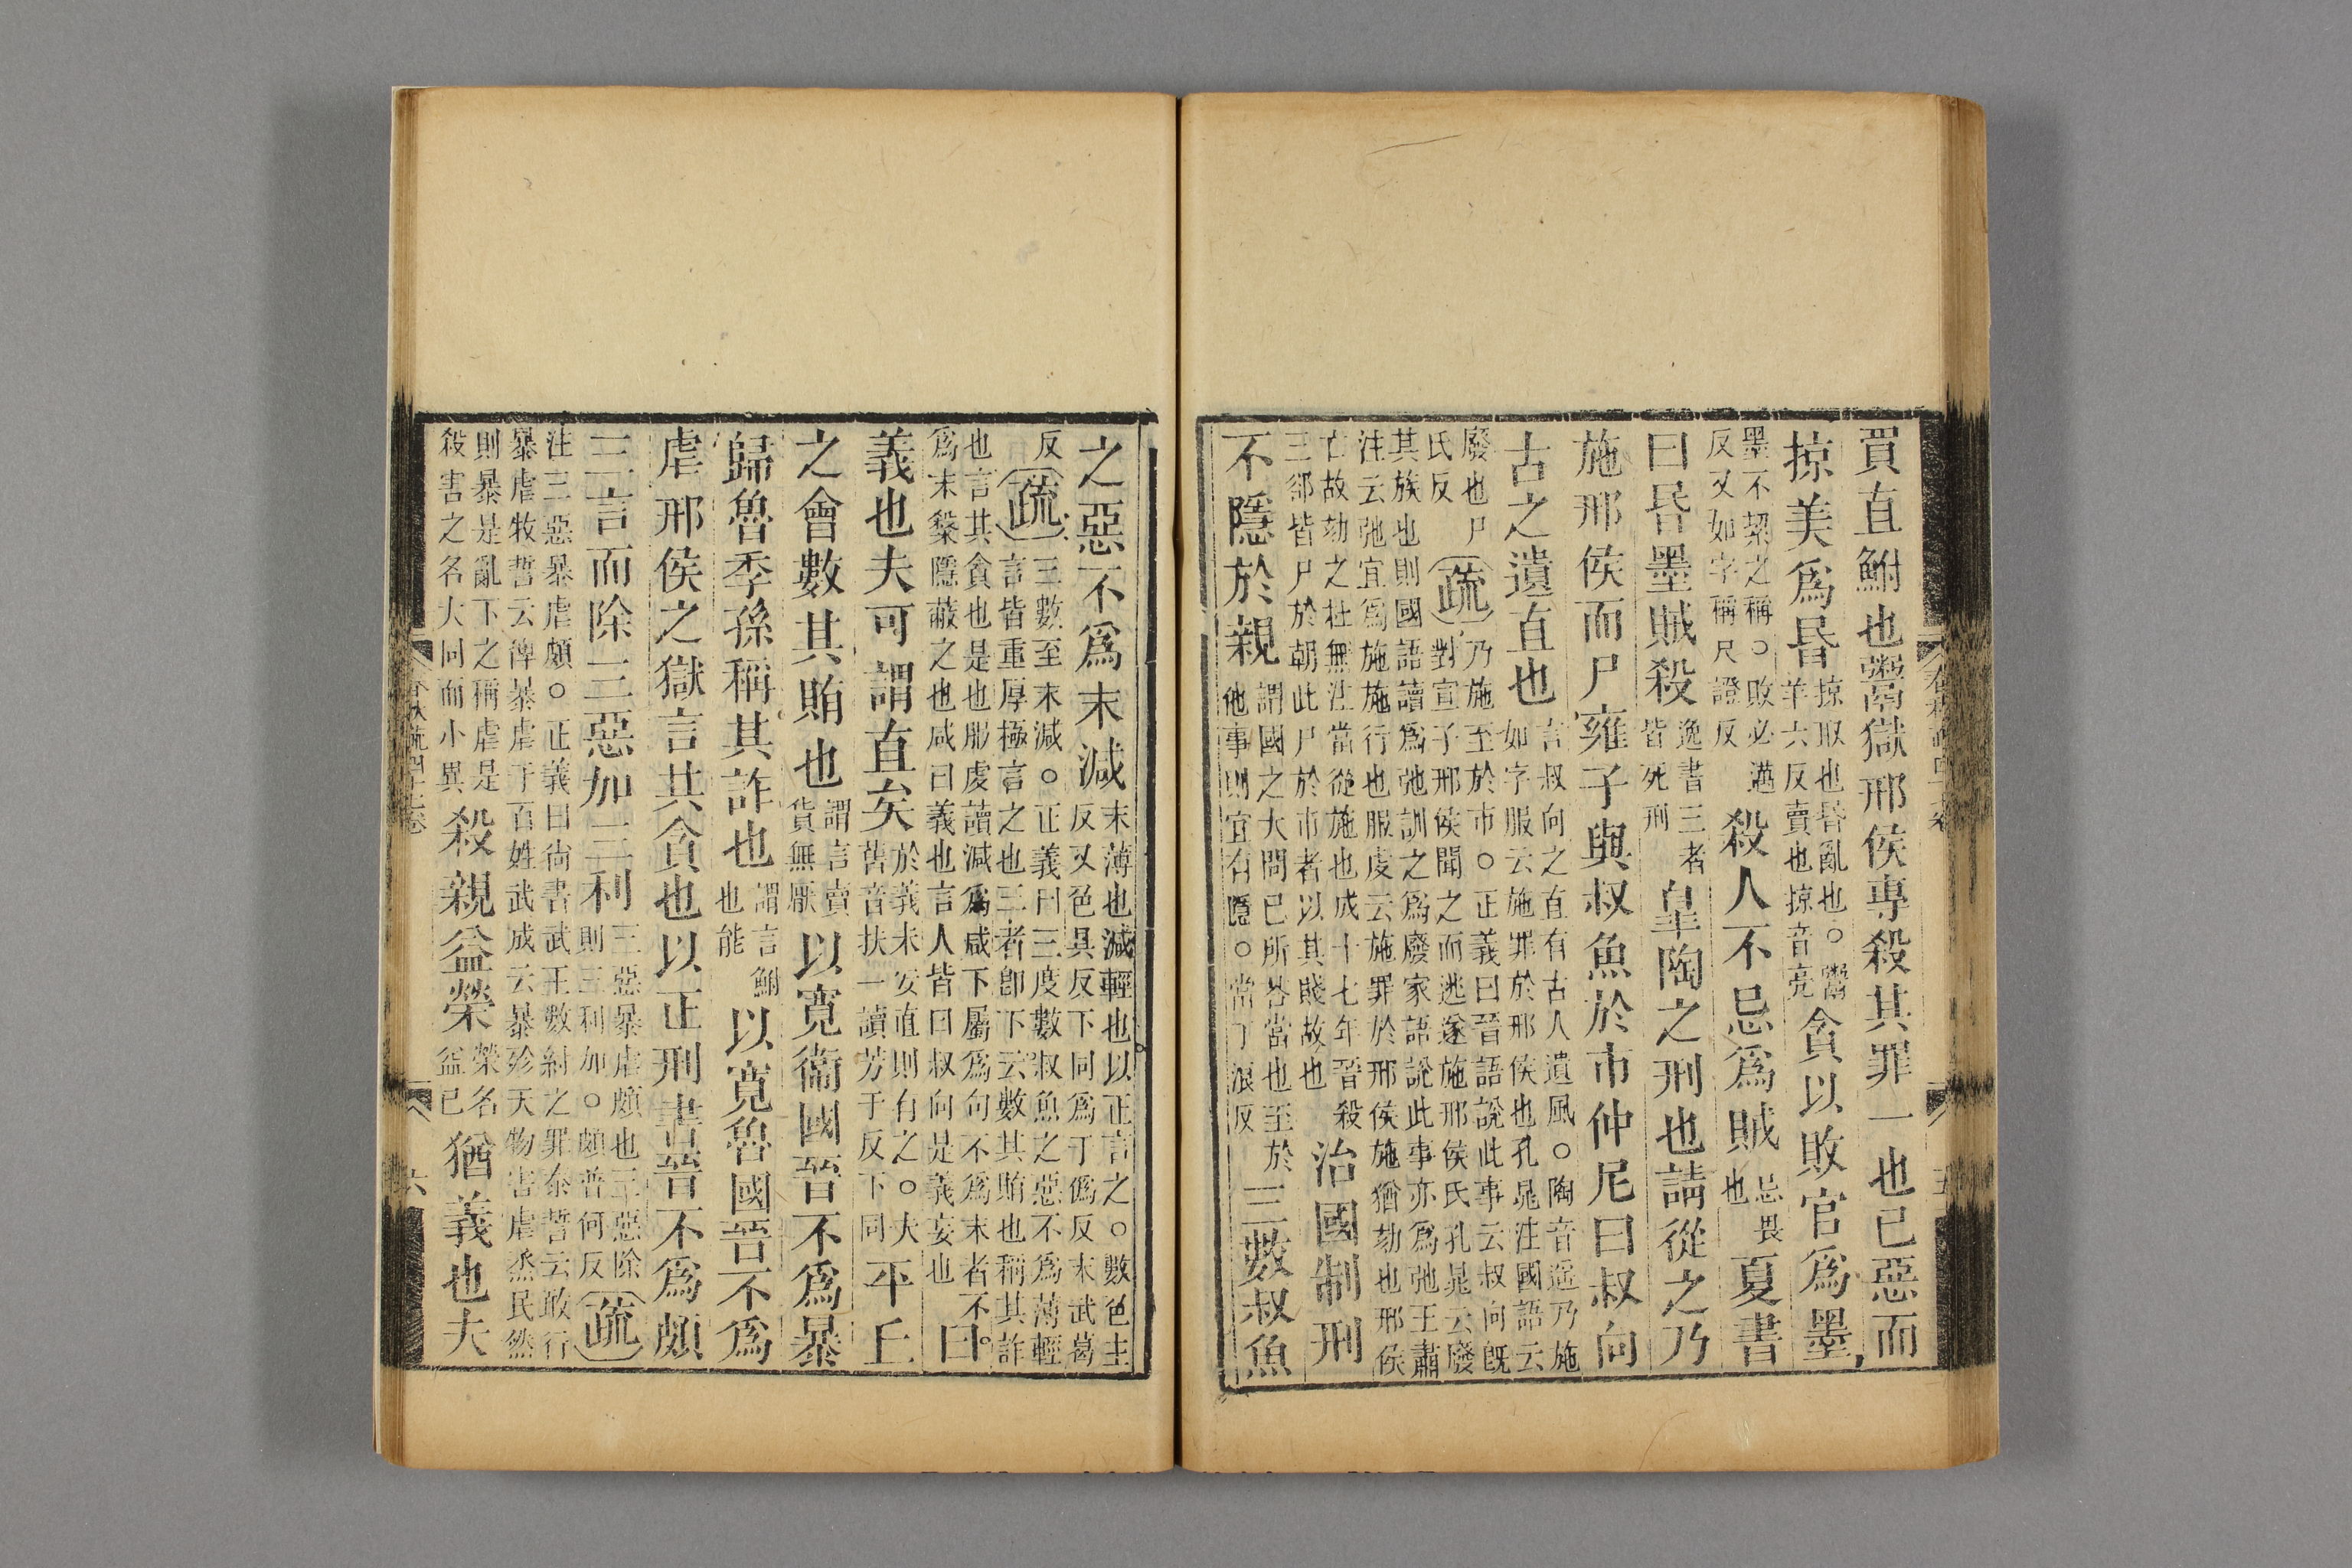 買直鮒也鬻獄邢侯專殺其罪一也已惡而
掠美爲昏掠取也昏亂也○鬻羊六反賣也掠音亮貪以敗官爲墨
墨不絜之稱○敗必邁反又如字稱尺證反殺人不忌爲賊忌畏也夏書
曰昏墨賊殺逸書三者皆死刑皐陶之刑也請從之乃
施邢侯而尸雍子與叔魚於市仲尼曰叔向
古之遺直也言叔向之直有古人遺風○陶音遥乃施如字服云施罪於邢侯也孔晁注國語云
廢也尸氏反疏乃施至於市○正義曰晉語說此事云叔向旣對宣子邢侯聞之而逃遂施邢侯氏孔晁云廢
其族也則國語讀爲弛訓之爲廢家語說此事亦爲弛王肅注云弛宜爲施施行也服虔云施罪於邢侯施猶劾也邢侯
亡故劾之杜無注當從施也成十七年晉殺三郤皆尸於朝此尸於市者以其賤故也治國制刑
不隱於親謂國之大問已所荅當也至於他事則宜有隱○當丁浪反三數叔魚
之惡不爲末減末薄也減輕也以正言之○數色主反又色具反下同爲于僞反末武葛
反疏三數至末減○正義曰三度數叔魚之惡不爲薄輕言皆重厚極言之也三者卽下云數其賄也稱其詐
也言其貪也是也服虔讀減爲咸下屬爲句不爲末者不爲末槃隱蔽之也咸曰義也言人皆曰叔向是義妄也曰
義也夫可謂直矣於義未安直則有之○夫舊音扶一讀芳于反下同平丘
之會數其賄也謂言瀆貨無厭以寛衞國晉不爲暴
歸魯季孫稱其詐也謂言鮒也能以寛魯國晉不爲
虐邢侯之獄言其貪也以正刑書晉不爲頗
三言而除三惡加三利三惡暴虐頗也三惡除則三利加○頗普何反疏
注三惡暴虐頗○正義曰尚書武王數紂之罪泰誓云敢行暴虐牧誓云俾暴虐于百姓武成云暴殄天物害虐烝民然
則暴是亂下之稱虐是殺害之名大同而小異殺親益榮榮名益已猶義也夫
六